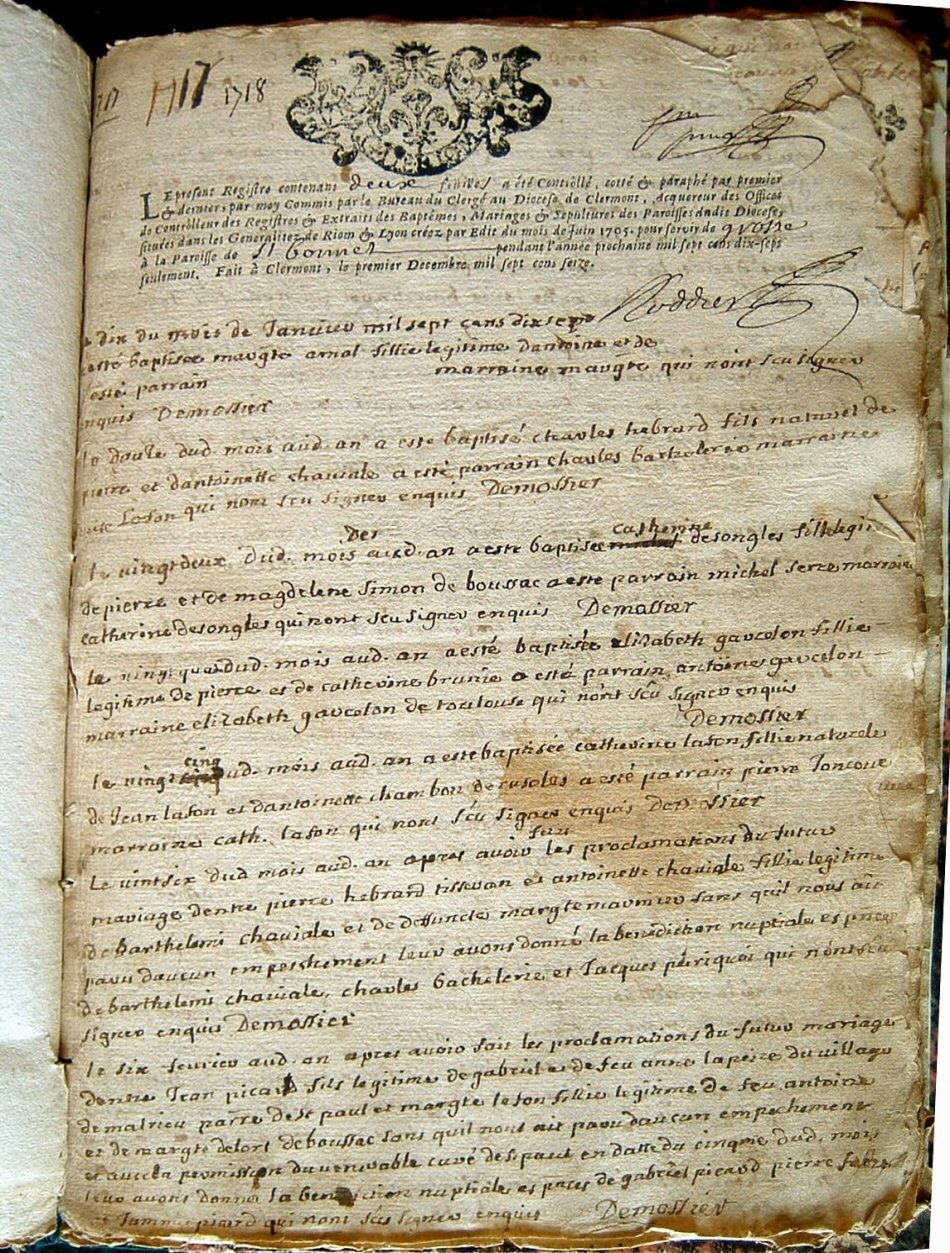 1717 1718
LE present Registre contenant deux feuilles a été Contrôllé, cotté & paraphé par premier
& dernier, par moy Commis par le Bureau du Clergé au Diocese de Clermont, Acquereur des Offices
de Contrôlleur des Registres & Extraits des Baptêmes, Mariages & Sepultures des Paroisses dudit Diocese,
situées dans les Generalitez de Riom & Lyon créez par Edit du mois de Juin 1705. pour servir de grosse
à la Paroisse de St bonnet pendant l'année prochaine mil sept cens dix-sept
seulement. Fait à Clermont, le premier Decembre mil sept cens seize.
Roddier
dix du mois de Janvier mil sept cens dix sept
esté baptisée margte amal fillie legitime dantoine et de
esté parrain marraine margte qui nont sceu signer
enquis Demossier
le douze dud. mois aud. an a esté baptisé charles hebrard fils naturel de
pierre et dantoinette chaviale a esté parrain charles barthelerie marraine
Lafon qui nont sceu signer enquis Demossier
Der catherine
le vingt deux dud. mois aud. an a esté baptisée desongles fille legit
de pierre et de magdelene simon de boussac a esté parrain michel serre marraine
catherine desongles qui nont sceu signer enquis Demossier
le dud. mois aud. an a esté baptisée elizabeth gavcelon fillie
legitime de pierre et de catherine brunie a esté parrain antoine gavcelon
marraine elizabeth gavcelon de toulouse qui nont sceu signer enquis
Demossier
cinq
le vingt dud. mois aud. an a esté baptisée catherine lafon fillie naturele
de Jean lafon et dantoinette chambon de rusoles a esté parrain pierre Joncoue
marraine cath. lafon qui nont sceu signer enquis Demossier
le vintsix dud mois aud. an apres avoir fait les proclamations du futur
mariage dentre pierre hebrard tisseran et antoinette chaviale fillie legitime
de barthelemi chaviale et de deffuncte margte sans quil nous ait
paru daucun empeschement leur avons donné la benediction nuptiale es pnces
de barthelemi chaviale, charles bachelerie et Jacques periquoi qui nont sceu
signer enquis Demossier
le six fevrier aud. an apres avoir fait les proclamations du futur mariage
dentre Jean picard fils legitime de gabriel et de feu anne lapeire du village
de malrieu parre de st paul et margte lafon fillie legitime de feu antoine
et de margte delort de boussac sans quil nous ait paru daucun empechement
et avec la promission du venerable curé de st paul en datte du cinqme dud. mois
leur avons donné la benediction nuptiale es pnces de gabriel picard pierre
et picard qui nont sceu signer enquis Demossier